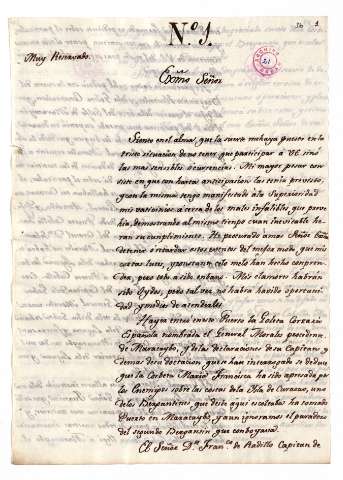 N.º 1.
Muy Reservado.
Exmo Señor
Siento en el alma, que la suerte me haya puesto en la
triste situacion de no tener que participar á VE. sinó
las mas sensibles ocurrencias. Mi mayor pesar con-
siste en que con harta anticipacion las tenia previsto
y con la misma tengo manifestado á la Superioridad
mi vaticinio acerca de los males infalibles que preve-
hia, demostrando al mismo tiempo cuan inevitable ha-
ria su cumplimiento. He procurado
detener ó retardar estos eventos del mejor modo, que mis
cortas luces, y me han hecho compren-
der, pero todo ha sido en vano. Mis clamores habrán
sido oydos, pero tal vez no habrá havido oportuni-
dad y medios de atenderlos.
Ayer entró en este Puerto la Goleta Corsario
Española nombrada el General Morales procedente
de Maracaybo, y de las declaraciones de su Capitan y
demas individuos que en ella han se deduce
que la Corbeta Maria Francisca ha sido apresada por
los Enemigos sobre las costas de la Isla de Curazao, uno
de los Bergantines que desde aqui escoltaba ha tomado
Puerto en Maracaybo, y aun ignoramos el paradero
del segundo Bergantin que conboyaba.
El Señor Dn. Franco. de Padilla Capitan de